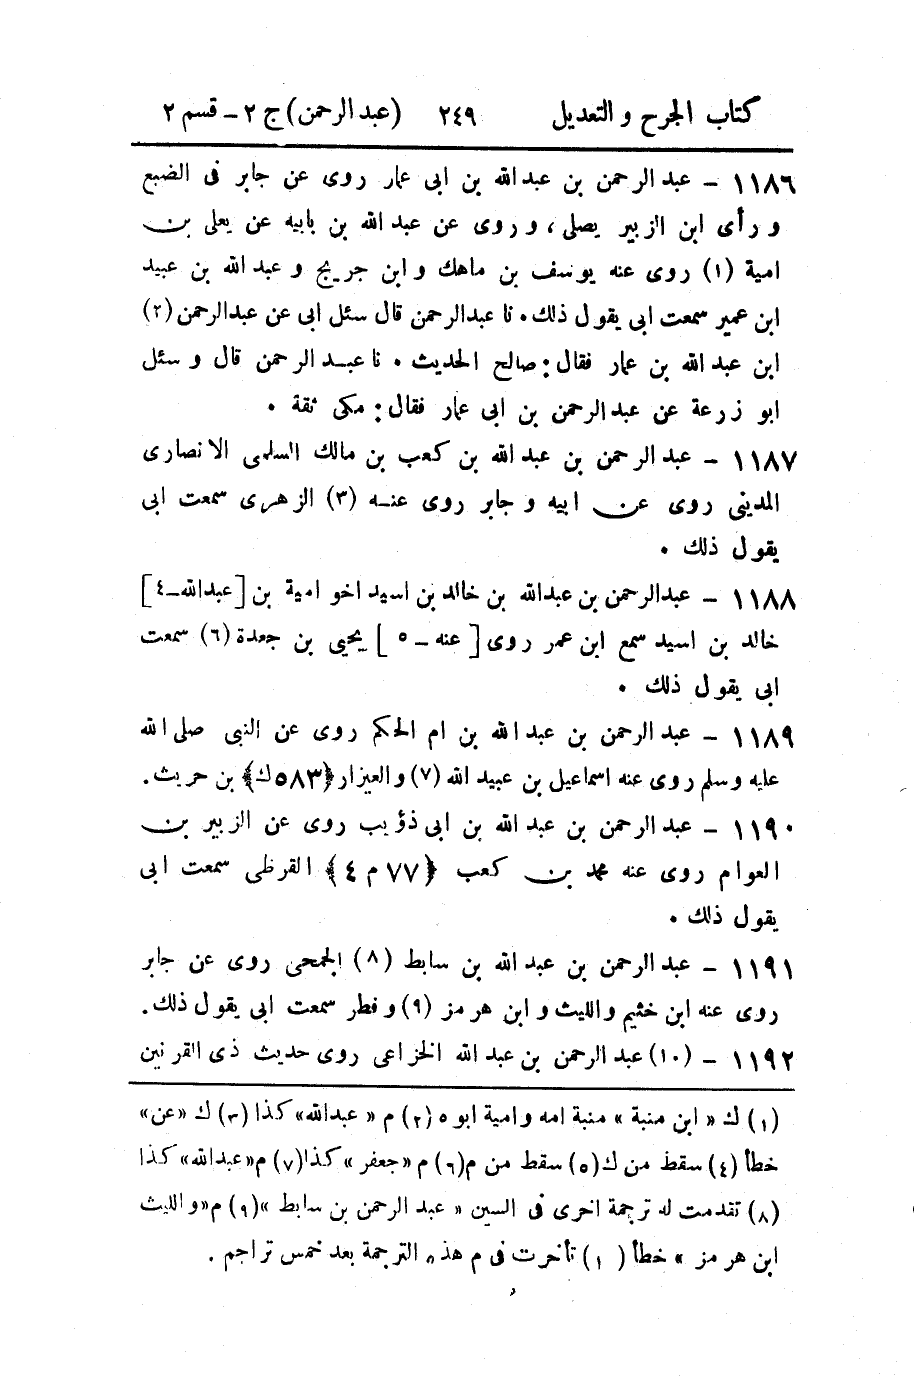 كتاب الجرح و التعديل ٢٤٩ (عبد الرحمن) ج ٢ - قسم ٢
١١٨٦ - عبد الرحمن بن عبد الله بن ابى عمار روى عن جابر فى الضبع
و رأى ابن الزبير يصلى، و روى عن عبد الله بن بابيه عن يعلى بن
امية (١) روى عنه يوسف بن ماهك و ابن جريج و عبد الله بن عبيد
ابن عمير سمعت ابى يقول ذلك. نا عبدالرحمن قال سئل ابى عن عبدالرحمن (٢)
ابن عبد الله بن عمار فقال: صالح الحديث. نا عبد الرحمن قال و سئل
ابو زرعة عن عبدالرحمن بن ابى عمار فقال: مكى ثقة.
١١٨٧ - عبد الرحمن بن عبد الله بن كعب بن مالك السلمى الانصارى
المدينى روى عن ابيه و جابر روى عنه (٣) الزهرى سمعت ابى
يقول ذلك.
١١٨٨ - عبدالرحمن بن عبدالله بن خالد بن اسيد اخو امية بن [عبدالله-٤]
خالد بن اسيد سمع ابن عمر روى [عنه - ٥] يحيى بن جعدة (٦) سمعت
ابى يقول ذلك.
١١٨٩ - عبد الرحمن بن عبد الله بن ام الحكم روى عن النبى صلى الله
عليه وسلم روى عنه اسماعيل بن عبيد الله (٧) و العيزار ﴿٥٨٣ك﴾ بن حريث.
١١٩٠ - عبد الرحمن بن عبد الله بن ابى ذؤيب روى عن الزبير بن
العوام روى عنه محمد بن كعب ﴿٧٧ م ٤﴾ القرظى سمعت ابى
يقول ذلك.
١١٩١ - عبد الرحمن بن عبد الله بن سابط (٨) الجمحى روى عن جابر
روى عنه ابن خثيم والليث و ابن هرمز (٩) و فطر سمعت ابى يقول ذلك.
١١٩٢ - (١٠) عبد الرحمن بن عبد الله الخزاعى روى حديث ذى القرنين
(١) ك « ابن منية » منية امه و امية ابوه (٢) م « عبدالله» كذا (٣) ك «عن»
خطأ (٤) سقط من ك (٥) سقط من م (٦) م «جعفر» كذا (٧) م «عبدالله» كذا
(٨) تقدمت له ترجمة اخرى فى السين « عبد الرحمن بن سابط » (٩) م «و الليث
ابن هرمز » خطأ ( ١ ) تأخرت فى م هذه الترجمة بعد خمس تراجم .